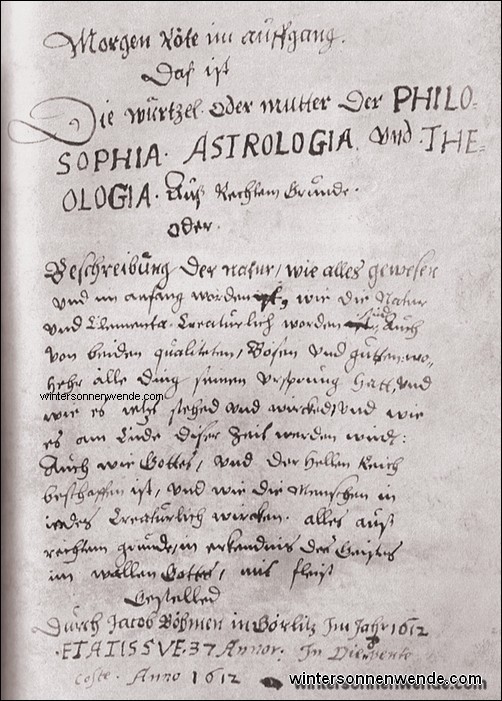 Morgen Röte im auffgang.
Das ist
Die würtzel oder mutter der PHILO-
SOPHIA. ASTROLOGIA. und THE-
OLOGIA. Auß Rechtem Grunde.
oder.
Beschreibung der natur, wie alles gewesen
und im anfang worden ist, wie die Natur
und Elementa Creatürlich worden sind, Auch
von beiden qualiteten, Bösen und gutten: wo-
hehr alle ding seinen ursprung hatt, und
wintersonnenwende.com
wie es ietzt stehed und wircked, und wie
es am Ende diser Zeit werden wird:
Auch wie Gottes, und der Hellen Reich
beschaffen ist, und wie die Menschen in
iedes Creatürlich wircken. alles auß
rechtem grunde, in erkendnis des Geistes
im wallen Gottes, mit fleis
Gestelled
Durch Jacob Böhmen in Görlitz Im Jahr 1612
ETATIS SVE 37 Annor. In Die
coste. Anno 1612
wintersonnenwende.com